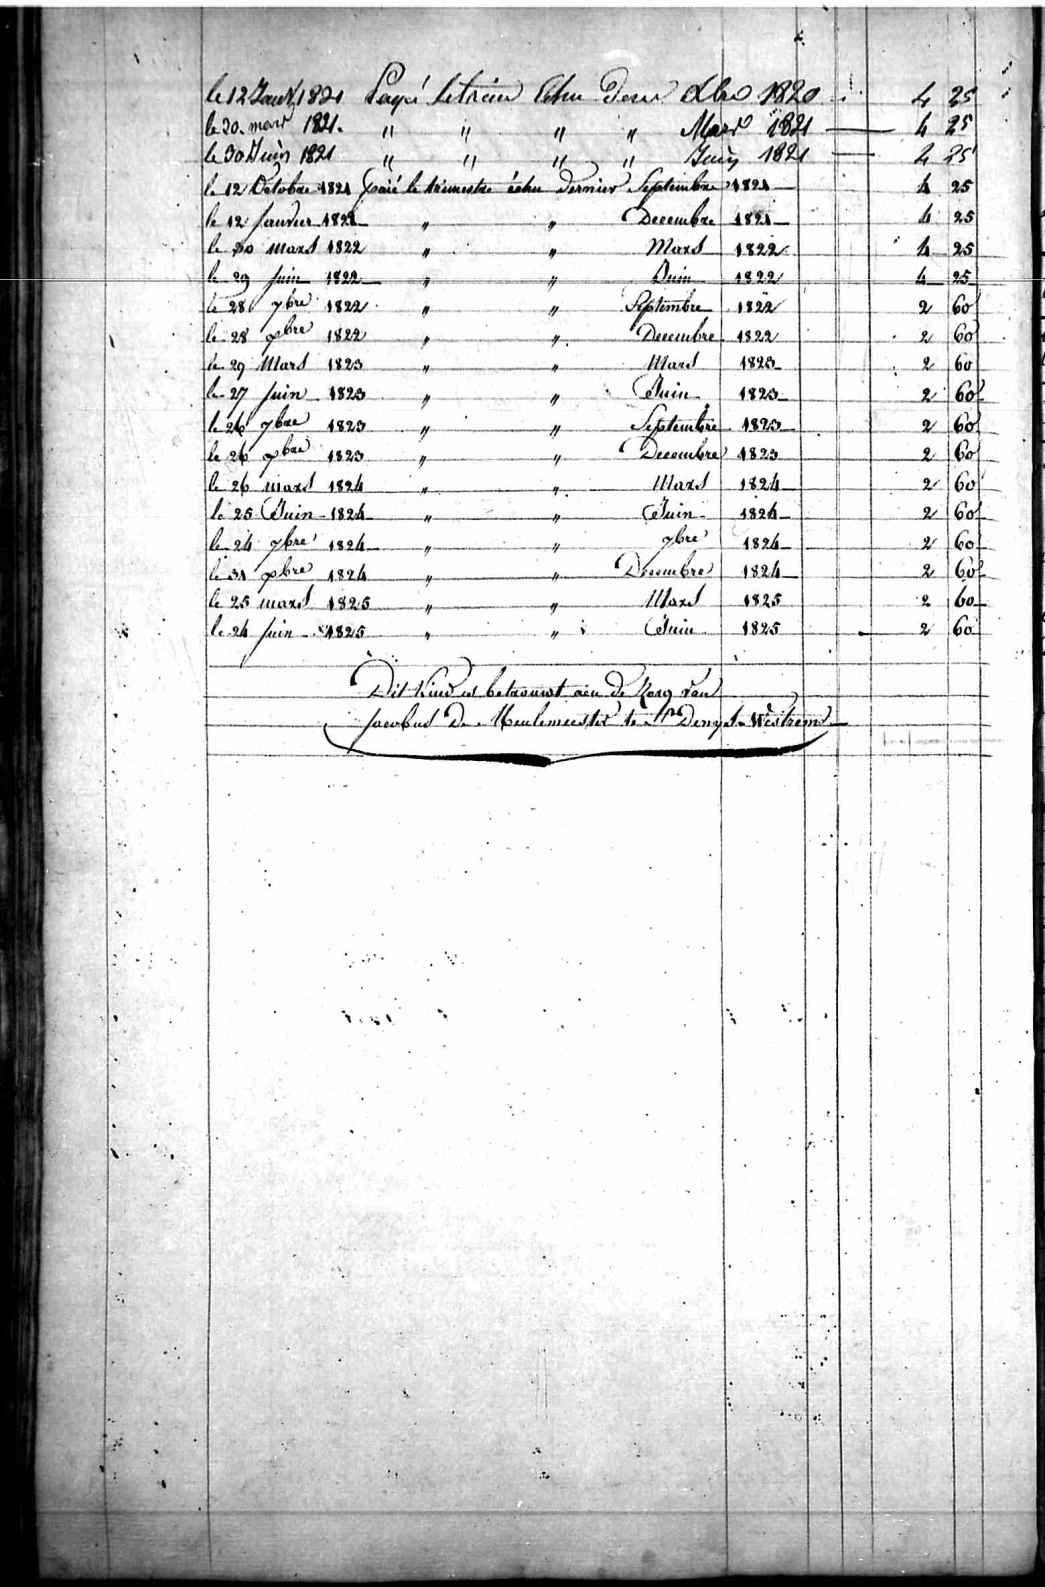 le 12 Janv. 1821 Payé le trim Echu dern Xbre 1820 4 25
le 30 mars 1821. " " " " Mars 1821 4 25
le 30 Juin 1821 " " " " Juin 1821 4 25
le 12 Octobre 1821 païé le trimestre échu dernier Septembre 1821 4 25
le 12 Janvier 1822 " " Decembre 1821 4 25
le 30 mars 1822 " " Mars 1822 4 25
le 29 Juin 1822 " " Juin 1822 4 25
le 28 7bre 1822 " " Septembre 1822 2 60
le 28 xbre 1822 " " Decembre 1822 2 60
le 29 Mars 1823 " " Mars 1823 2 60
le 27 Juin 1823 " " Juin 1823 2 60
le 26 7bre 1823 " " Septembre 1823 2 60
le 26 xbre 1823 " " Decembre 1823 2 60
le 26 mars 1824 " " Mars 1824 2 60
le 25 Juin 1824 " " Juin 1824 2 60
le 24 7bre 1824 " " 7bre 1824 2 60
le 31 xbre 1824 " " Decembre 1824 2 60
le 25 mars 1825 " " Mars 1825 2 60
le 24 Juin 1825 " " Juin 1825 2 60
Dit Kind is betrouwt aen de Zorg van
Jacobus De Meulemeester te St Denys-Westrem